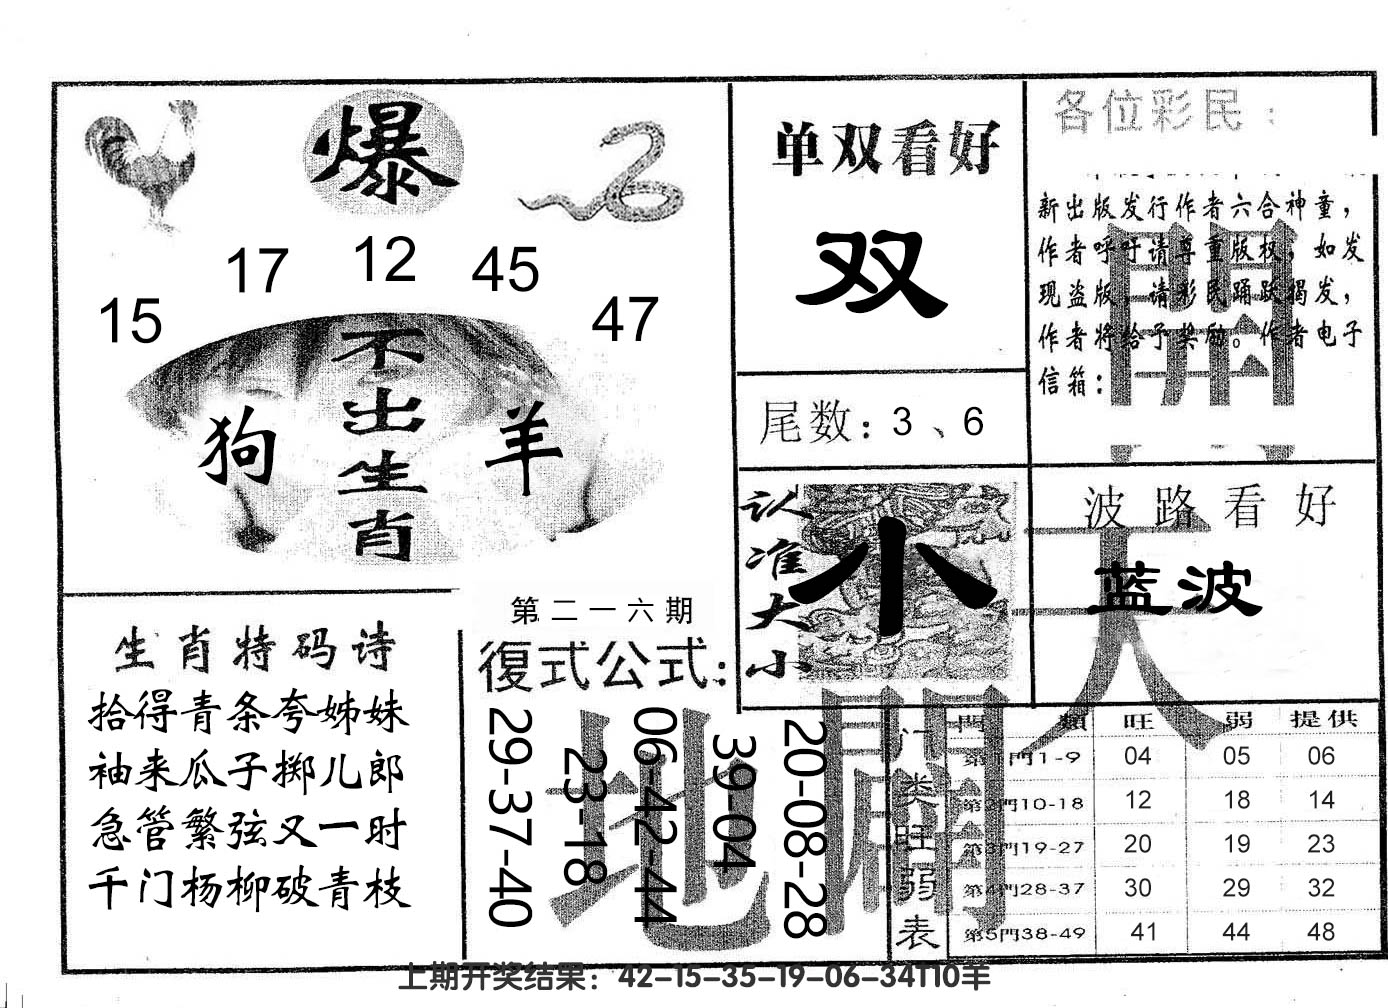 爆
15
17
12
45
47
不出生肖
狗
羊
单双看好
双
尾数：3、6
各位彩民：
新出版发行作者六合神童，
作者呼吁请尊重版权，如发
现盗版，请彩民踊跃揭发，
作者将给予奖励。作者电子
信箱：
認准大小
小
波路看好
蓝波
生肖特码诗
拾得青条夸姊妹
袖来瓜子掷儿郎
急管繁弦又一时
千门杨柳破青枝
第二一六期
復式公式：
29-37-40
23-18
06-42-44
39-04
20-08-28
天
開
地
闢
门类旺弱表
門類 旺 弱 提供
第1門1-9 04 05 06
第2門10-18 12 18 14
第3門19-27 20 19 23
第4門28-37 30 29 32
第5門38-49 41 44 48
上期开奖结果：42-15-35-19-06-34T10羊